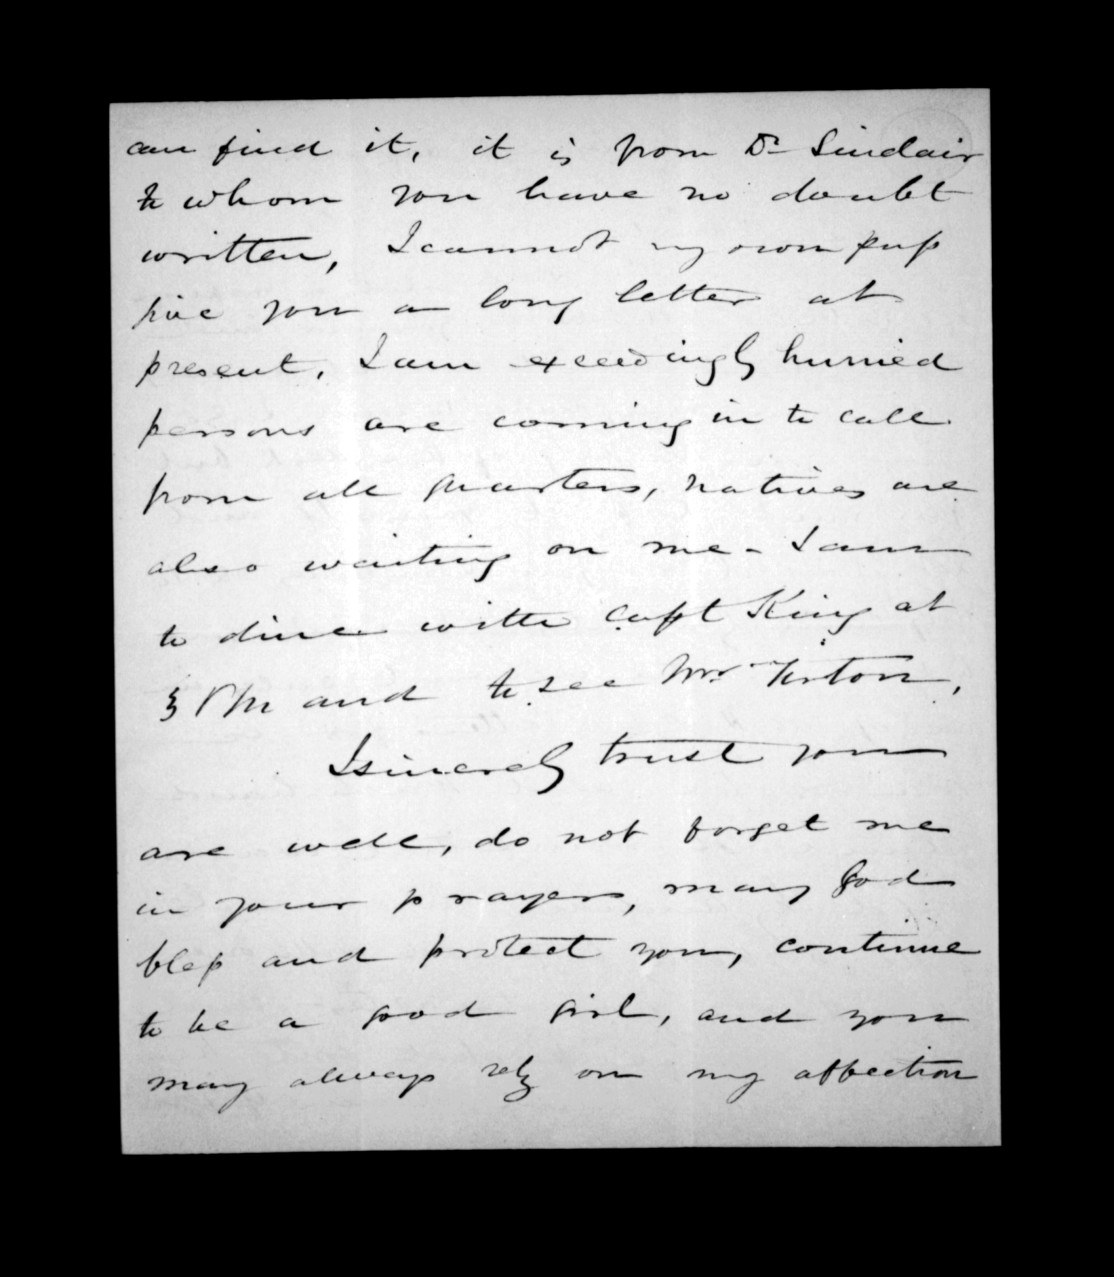 can find it, it is from Dr Sinclair
to whom you have no doubt
written, I cannot my own puss
give you a long letter at
present, I am exceedingly hurried
persons are coming in to call
from all quarters, natives are
also waiting on me - I am
to dine with Capt King at
3 PM and to see Mrs
I sincerely trust you
are well, do not forget me
in your prayers, may God
bless and protect you, continue
to be a good girl, and you
may always rely on my affection